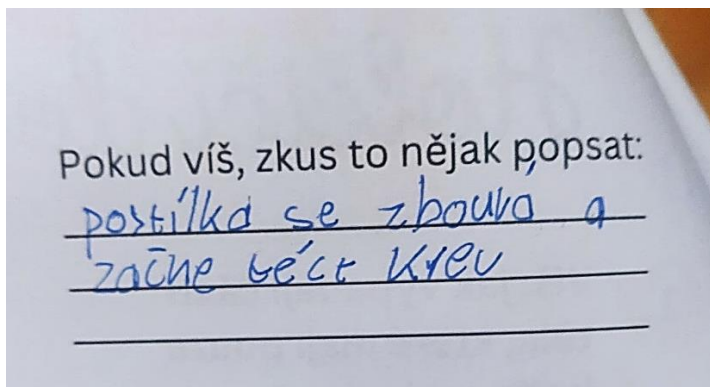 Pokud víš, zkus to nějak popsat:
postílka se zbourá a
začne téct krev